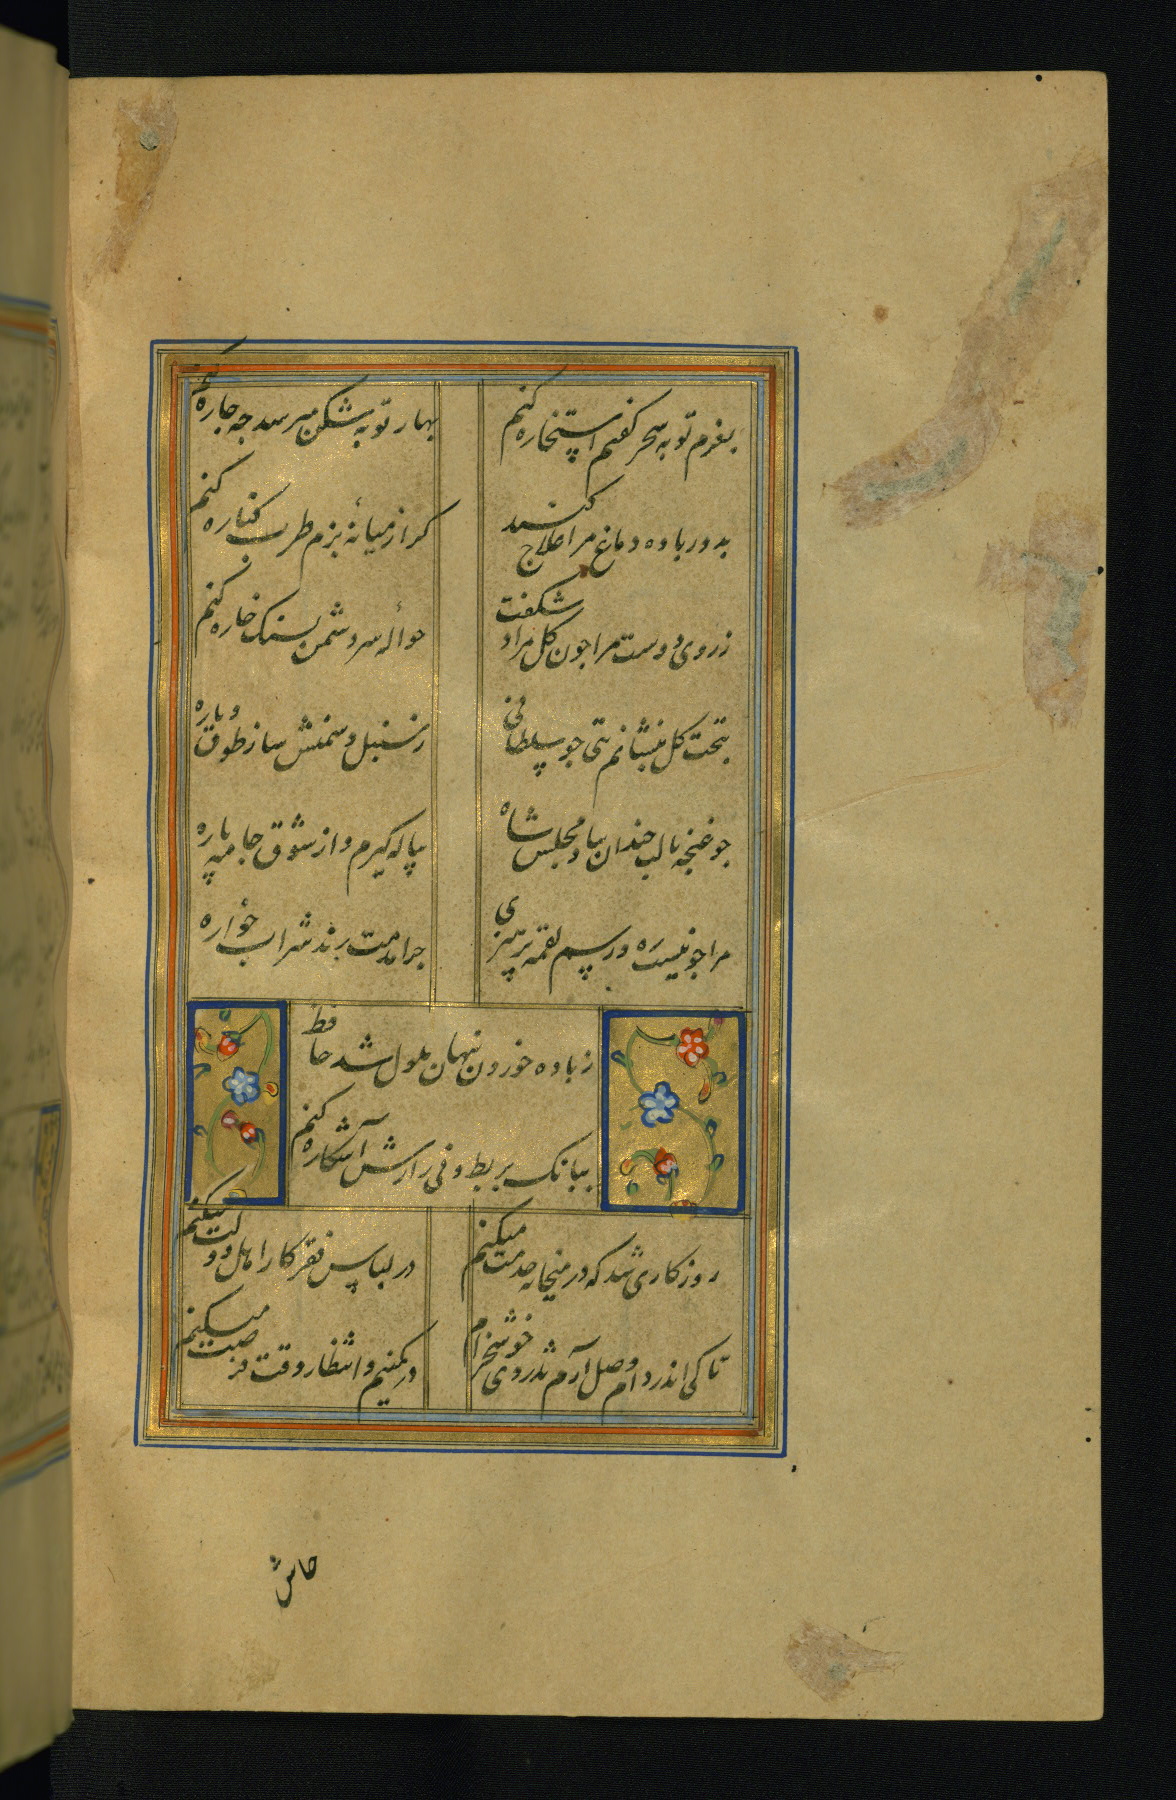 بعزم توبه سحر کفتم استخاره کنم
بهار توبه شکن میرسد جه جاره کنم
بدور باده دماغ مرا علاج کنید
کر از میانهٔ بزم طرب کناره کنم
ز روی دوست مرا جون کل مراد شکفت
حوالهٔ سر دشمن بسنک خاره کنم
بتخت کل بنشانم بتی جو سلطانی
ز سنبل و سمنش ساز طوق و یاره
جو غنجه با لب خندان بیاد مجلس شاه
پیاله کیرم و از شوق جامه پاره
مرا جو نیست ره و رسم لقمه پرهیزی
جرا مذمت رند شراب خواره
ز باده خوردن پنهان ملول شد حافظ
ببانک بربط و نی رازش آشکاره کنم
روزکاری شد که در میخانه خدمت میکنم
در لباس فقر کار اهل دولت میکنم
تا کی اندر دام وصل آرم تذروی خوش خرام
در کمینم و انتظار وقت فرصت میکنم
حاش